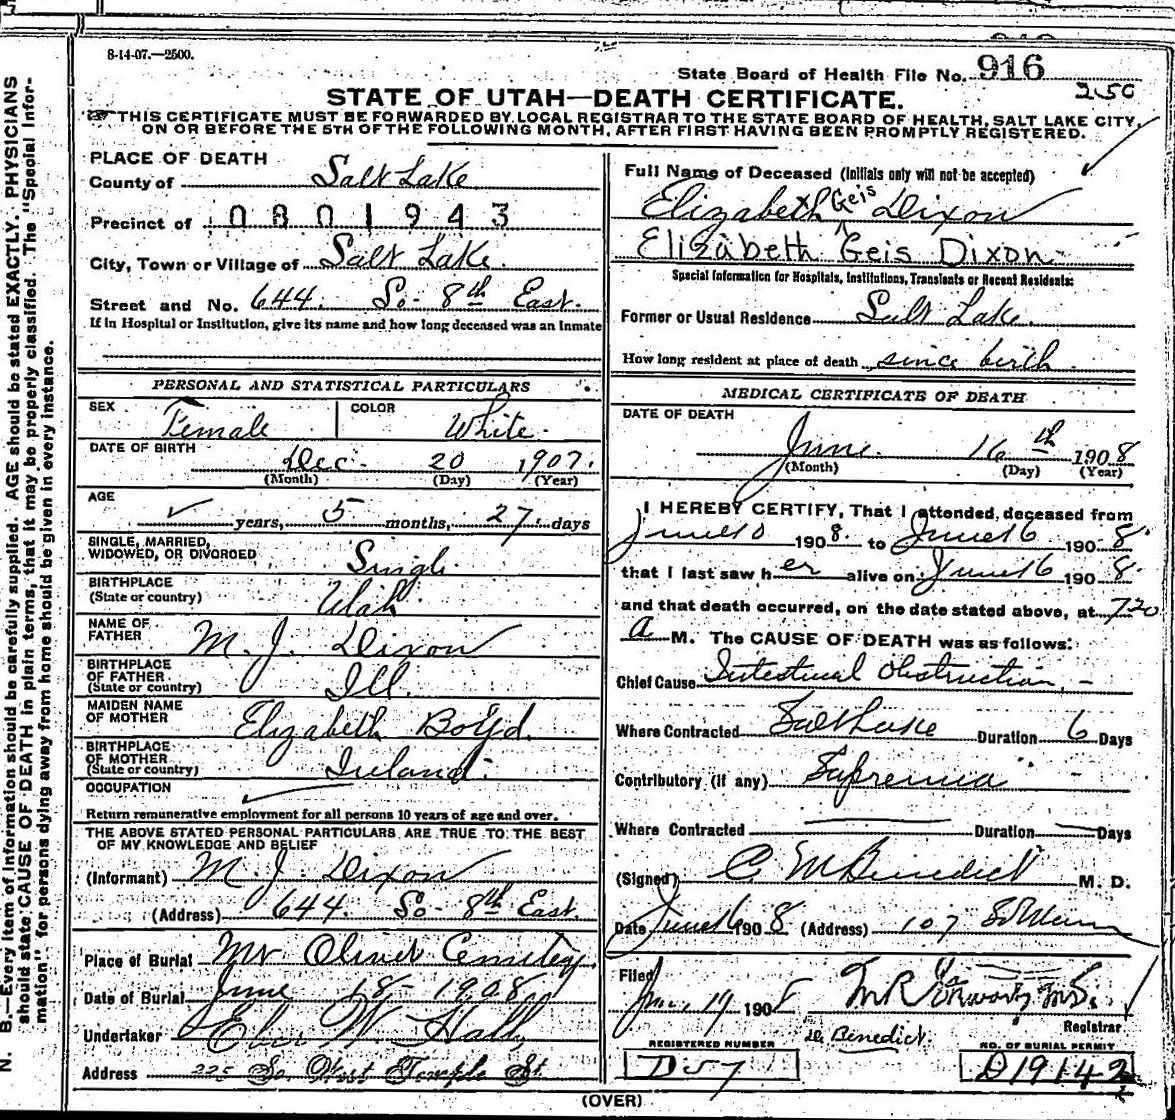 8-14-07.—2500.
State Board of Health File No. 916
250
STATE OF UTAH—DEATH CERTIFICATE.
THIS CERTIFICATE MUST BE FORWARDED BY LOCAL REGISTRAR TO THE STATE BOARD OF HEALTH, SALT LAKE CITY,
ON OR BEFORE THE 5TH OF THE FOLLOWING MONTH, AFTER FIRST HAVING BEEN PROMPTLY REGISTERED.
N. B.—Every item of information should be carefully supplied. AGE should be stated EXACTLY. PHYSICIANS
should state CAUSE OF DEATH in plain terms, that it may be properly classified. The "Special Infor-
mation" for persons dying away from home should be given in every instance.
PLACE OF DEATH
County of Salt Lake
Precinct of 0801943
City, Town or Village of Salt Lake.
Street and No. 644. So- 8th East.
If in Hospital or Institution, give its name and how long deceased was an Inmate
PERSONAL AND STATISTICAL PARTICULARS
SEX Female COLOR White
DATE OF BIRTH Dec. 20 1907.
(Month) (Day) (Year)
AGE
years, 5 months, 27 days
SINGLE, MARRIED,
WIDOWED, OR DIVORCED Single
BIRTHPLACE
(State or country) Utah
NAME OF
FATHER M. J. Dixon
BIRTHPLACE
OF FATHER
(State or country) Ill.
MAIDEN NAME
OF MOTHER Elizabeth Boyd.
BIRTHPLACE
OF MOTHER
(State or country) Ireland.
OCCUPATION
Return remunerative employment for all persons 10 years of age and over.
THE ABOVE STATED PERSONAL PARTICULARS ARE TRUE TO THE BEST
OF MY KNOWLEDGE AND BELIEF
(Informant) M. J. Dixon
(Address) 644. So- 8th East.
Place of Burial Mt Olivet Cemetery.
Date of Burial June 18- 1908
Undertaker Eber W. Hall
Address 225 So. West Temple St
Full Name of Deceased (Initials only will not be accepted)
Elizabeth Geis Dixon
Elizabeth Geis Dixon
Special Information for Hospitals, Institutions, Transients or Recent Residents:
Former or Usual Residence Salt Lake.
How long resident at place of death since birth
MEDICAL CERTIFICATE OF DEATH
DATE OF DEATH
June. 16th 1908
(Month) (Day) (Year)
I HEREBY CERTIFY, That I attended, deceased from
June 10 1908. to June 16 1908.
that I last saw her alive on June 16 1908.
and that death occurred, on the date stated above, at 720
a M. The CAUSE OF DEATH was as follows:
Chief Cause Intestinal Obstruction, -
Where Contracted Salt Lake Duration 6 Days
Contributory (if any)
Where Contracted Duration Days
(Signed) C. M Benedict M. D.
Date June 16 1908 (Address) 107 So Main
Filed June 19 1908
Registrar
Dr. Benedict.
REGISTERED NUMBER
D 57
NO. OF BURIAL PERMIT
D19142
(OVER)